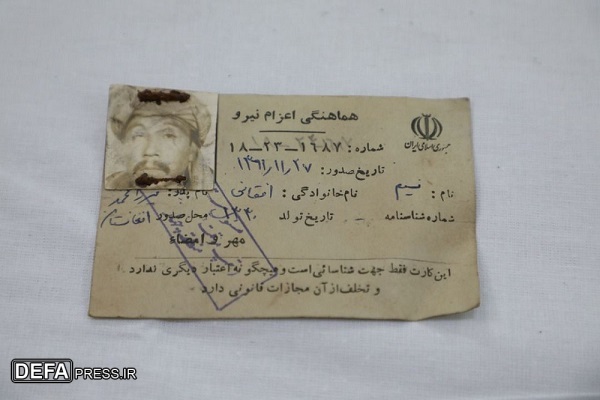 هماهنگی اعزام نیرو
جمهوری اسلامی ایران
شماره: ۱۶۸۷-۲۳-۱۸
تاریخ صدور: ۱۳۶۱/۱۱/۲۷
نام: نسیم نام خانوادگی: افغانی نام پدر: میرزا محمد
شماره شناسنامه - تاریخ تولد محل صدور افغانستان
مهر و امضاء
این کارت فقط جهت شناسائی است و هیچگونه اعتبار دیگری ندارد
و تخلف از آن مجازات قانونی دارد.
DEFAPRESS.IR